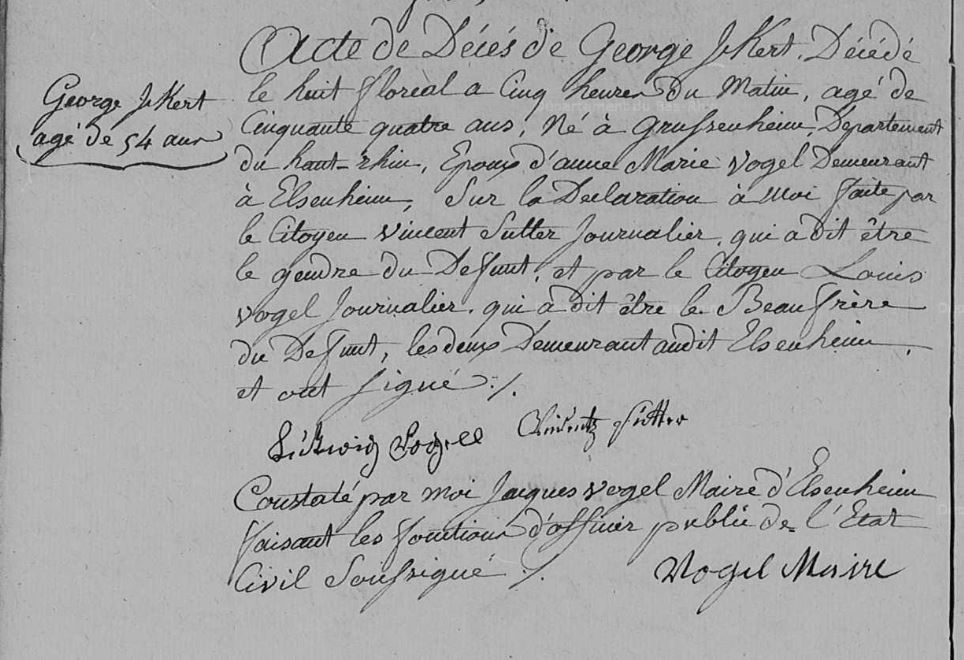 Acte de Décés de George Jckert. Décédé
George Jckert
le huit floreal a Cinq heures Du Matin, agé de
agé de 54 ans
Cinquante quatre ans, Né à Grussenheim, Departement
du haut-rhin, Epoux d'anne Marie Vogel Demeurant
à Elsenheim, Sur la Declaration à moi faite par
le Citoyen Vincent Sutter Journalier, qui a dit être
le gendre du Defunt, et par le Citoyen Louis
Vogel Journalier. qui a dit être le Beaufrère
du Defunt, les deux Demeurant audit Elsenheim,
et ont signé ./.
Ludwig Vogell Vincentz Sutter
Constaté par moi Jacques Vogel Maire d'Elsenheim
faisant les fonctions d'officier public de l'Etat
Civil Soussigné ./.
Vogel Maire